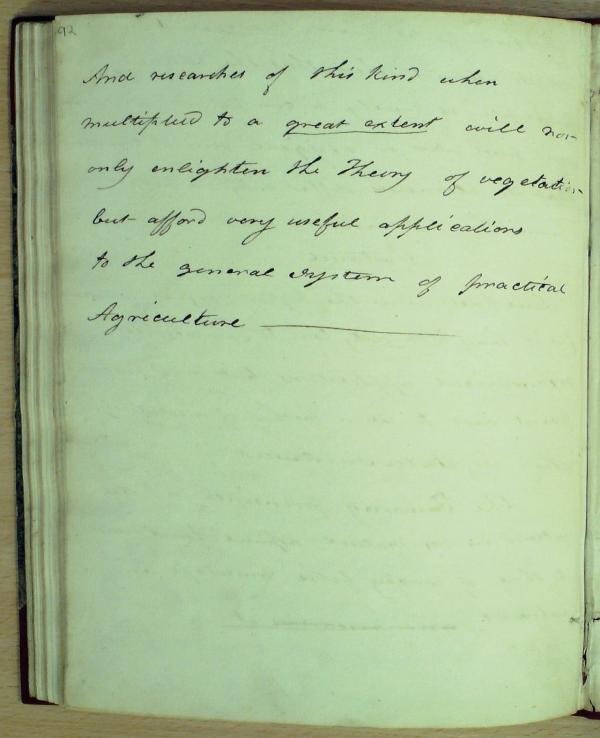 92
And researches of this kind when
multiplied to a great extent will not
only enlighten the Theory of vegetation
but afford very useful applications
to the general system of practical
Agriculture